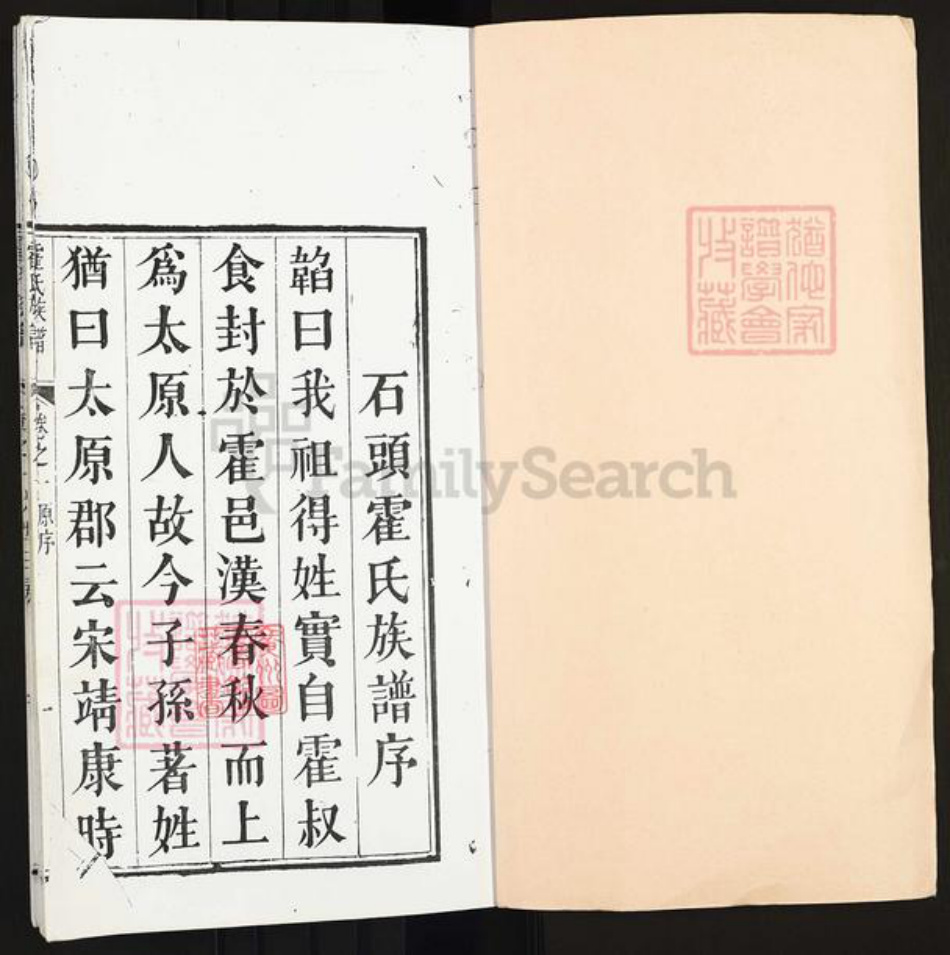 石頭霍氏族譜序
韜曰我祖得姓實自霍叔
食封於霍邑漢春秋而上
爲太原人故今子孫著姓
猶曰太原郡云宋靖康時
霍氏族譜
卷之一
原序
譜學會
收藏
FamilySearch